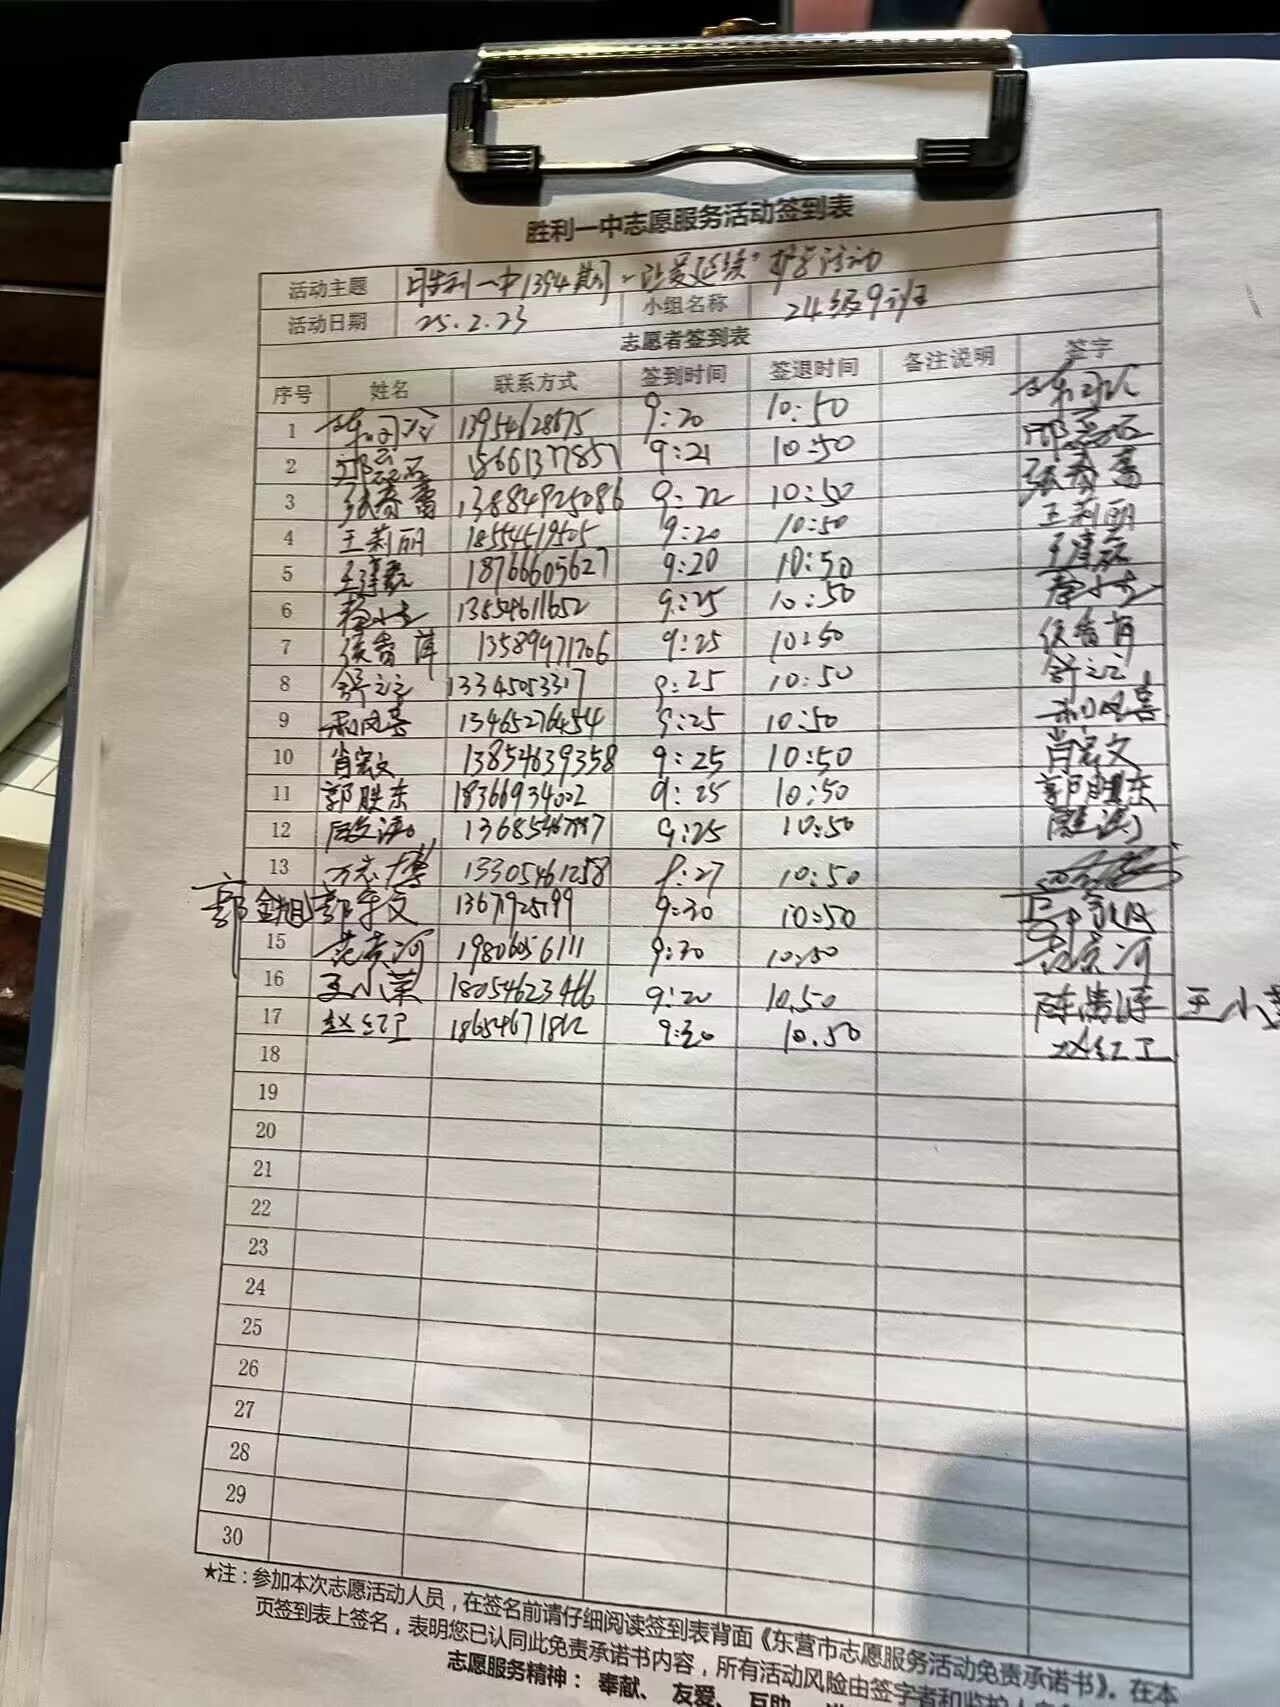 胜利一中志愿服务活动签到表
活动主题 胜利一中1394期"让爱延续"护学活动
活动日期 25.2.23 小组名称 24级9班
志愿者签到表
序号 姓名 联系方式 签到时间 签退时间 备注说明 签字
1 13954628675 9:20 10:50
2 18661377857 9:21 10:50
3 张春蕾 13884925086 9:22 10:50 张春蕾
4 王莉丽 18554519505 9:20 10:50 王莉丽
5 18766605627 9:20 10:50
6 13854611652 9:25 10:50
7 侯香萍 13589971706 9:25 10:50 侯香萍
8 舒立立 13345053317 9:25 10:50 舒立立
9 和风喜 13465276454 9:25 10:50 和风喜
10 肖宏文 13854639358 9:25 10:50 肖宏文
11 郭胜东 18366934002 9:25 10:50 郭胜东
12 9:25 10:50
13 万志博 13305461258 9:27 10:50
郭金旭 13671925199 9:30 10:50
15 范黄河 19806056111 9:30 10:50 范黄河
16 王小荣 18054623466 9:20 10.50 王小
17 赵红卫 18654671812 9:30 10.50 赵红卫
18
19
20
21
22
23
24
25
26
27
28
29
30
★注：参加本次志愿活动人员，在签名前请仔细阅读签到表背面《东营市志愿服务活动免责承诺书》，在本
页签到表上签名，表明您已认同此免责承诺书内容，所有活动风险由签字者和监护人
志愿服务精神：奉献、友爱、互助、